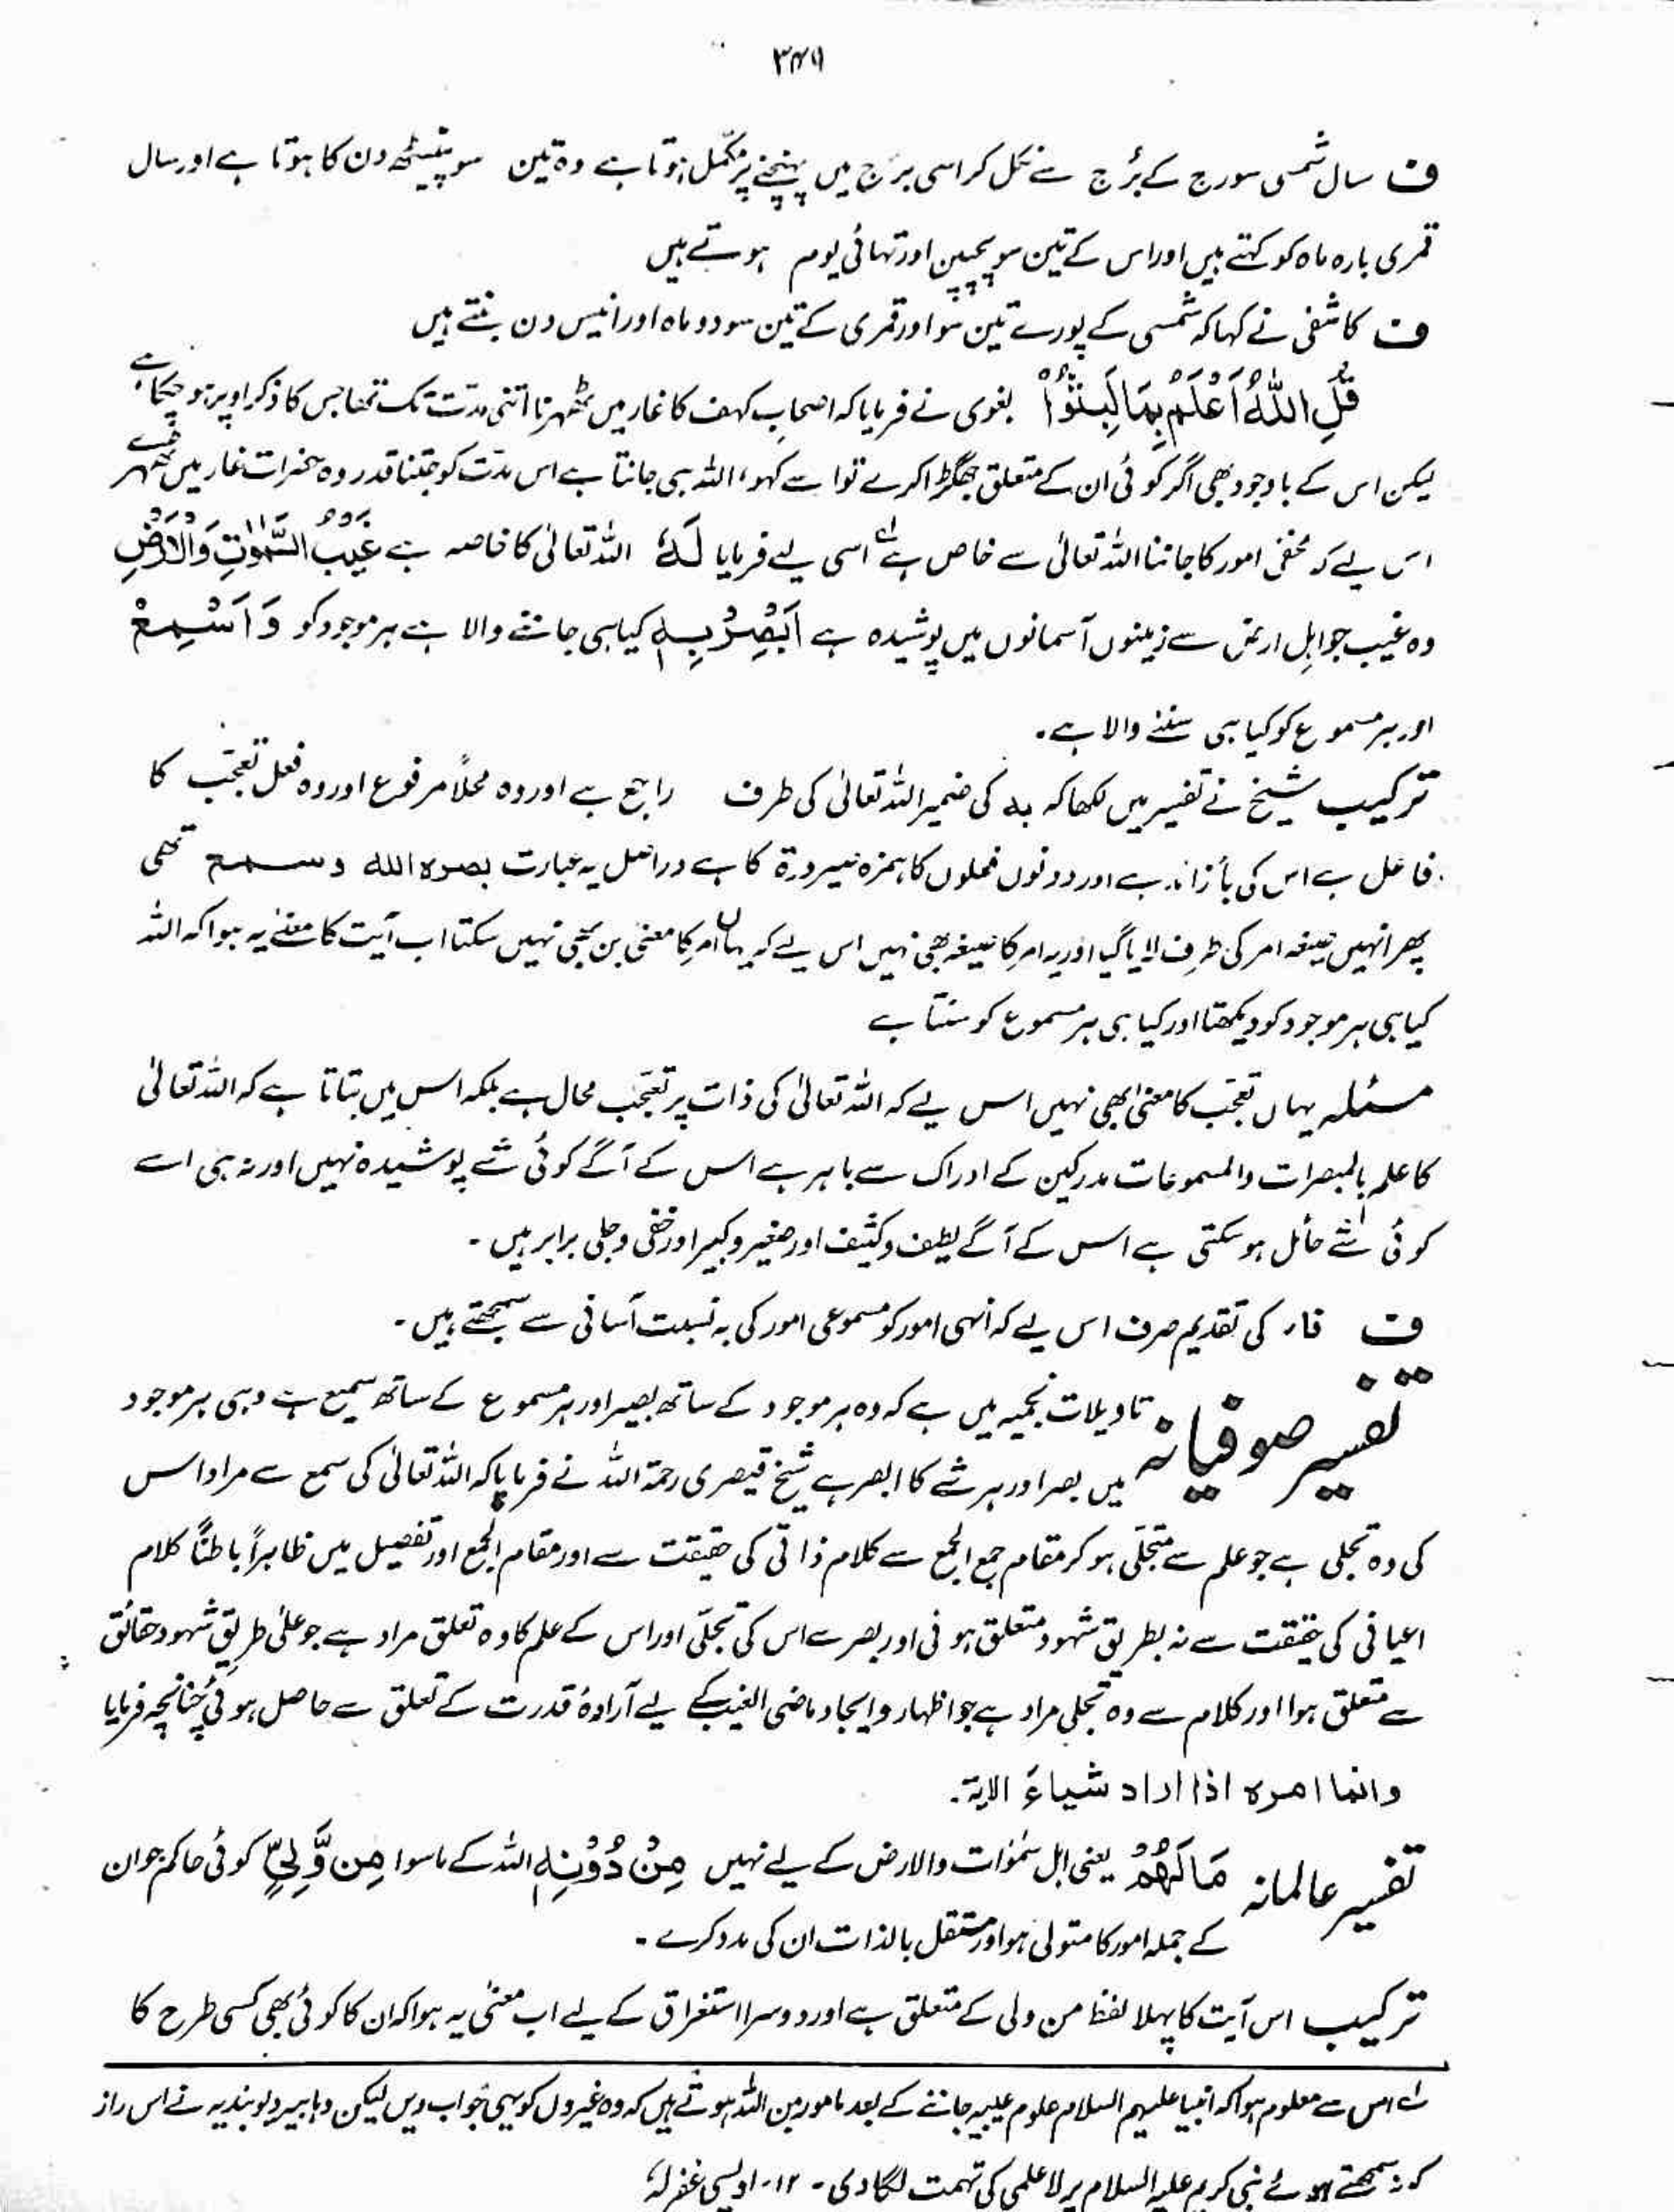 ۳۴۹
ف سال شمسی سورج کے بُرُج سے نکل کر اسی برج میں پہنچنے پر مکمّل ہوتا ہے وہ تین سو پینسٹھ دن کا ہوتا ہے اور سال
قمری بارہ ماہ کو کہتے ہیں اور اس کے تین سو پچپن اور تہائی یوم ہوتے ہیں
ف کاشفی نے کہا کہ شمسی کے پورے تین سو اور قمری کے تین سو دو ماہ اور انیس دن بنتے ہیں
قُلِ اللّٰهُ اَعْلَمُ بِمَا لَبِثُوْا بغوی نے فرمایا کہ اصحابِ کہف کا غار میں ٹھہرنا اتنی مدّت تک تھا جس کا ذکر اوپر ہو چکا ہے
لیکن اس کے باوجود بھی اگر کوئی ان کے متعلق جھگڑا کرے تو اسے کہو، اللہ ہی جانتا ہے اس مدّت کو جتنا قدر وہ حضرات غار میں ٹھہرے
اس لیے کہ مخفی امور کا جاننا اللہ تعالیٰ سے خاص ہے اسی لیے فرمایا لَهٗ اللہ تعالیٰ کا خاصہ ہے غَیْبُ السَّمٰوٰتِ وَالْاَرْضِ
وہ غیب جو اہلِ ارض سے زمینوں آسمانوں میں پوشیدہ ہے اَبْصِرْ بِهٖ کیا ہی جاننے والا ہے ہر موجود کو وَاَسْمِعْ
اور ہر مسموع کو کیا ہی سننے والا ہے۔
ترکیب شیخ نے تفسیر میں لکھا کہ بہ کی ضمیر اللہ تعالیٰ کی طرف راجع ہے اور وہ محلاً مرفوع اور وہ فعل تعجّب کا
فاعل ہے اس کی بأ زائد ہے اور دونوں فعلوں کا ہمزہ صیرورۃ کا ہے دراصل یہ عبارت بصرہ اللہ وسمع تھی
پھر انہیں صیغہ امر کی طرف لایا گیا اور یہ امر کا صیغہ بھی نہیں اس لیے کہ یہاں امر کا معنیٰ بن بھی نہیں سکتا اب آیت کا معنےٰ یہ ہوا کہ اللہ
کیا ہی ہر موجود کو دیکھتا اور کیا ہی ہر مسموع کو سنتا ہے
مسئلہ یہاں تعجّب کا معنیٰ بھی نہیں اس لیے کہ اللہ تعالیٰ کی ذات پر تعجّب محال ہے بلکہ اس میں بتاتا ہے کہ اللہ تعالیٰ
کا علم بالمبصرات والمسموعات مدرکین کے ادراک سے باہر ہے اس کے آگے کوئی شے پوشیدہ نہیں اور نہ ہی اسے
کوئی شے حائل ہو سکتی ہے اس کے آگے لطیف و کثیف اور صغیر و کبیر اور خفی و جلی برابر ہیں ۔
ف فاء کی تقدیم صرف اس لیے کہ انہی امور کو مسموعی امور کی بہ نسبت آسانی سے سمجھتے ہیں ۔
تفسیر صوفیانہ تاویلات نجمیہ میں ہے کہ وہ ہر موجود کے ساتھ بصیر اور ہر مسموع کے ساتھ سمیع ہے وہی ہر موجود
میں بصر اور ہر شے کا ابصر ہے شیخ قیصری رحمۃ اللہ نے فرمایا کہ اللہ تعالیٰ کی سمع سے مراد اس
کی وہ تجلی ہے جو علم سے متجلّی ہو کر مقام جمع الجمع سے کلام ذاتی کی حقیقت سے اور مقام الجمع اور تفصیل میں ظاہراً باطنًا کلام
اعیانی کی حقیقت سے نہ بطریق شہود متعلق ہوئی اور بصر سے اس کی تجلّی اور اس کے علم کا وہ تعلق مراد ہے جو علیٰ طریق شہود حقائق
سے متعلق ہوا اور کلام سے وہ تجلی مراد ہے جو اظہار و ایجاد ماضی الغیب کے لیے آرادۂ قدرت کے تعلق سے حاصل ہوئی چنانچہ فرمایا
وانما امرہ اذا اراد شیاءً الایۃ۔
تفسیر عالمانہ مَالَهُمْ یعنی اہل سمٰوات والارض کے لیے نہیں مِنْ دُوْنِهٖ اللہ کے ماسوا مِنْ وَّلِیٍّ کوئی حاکم جو ان
کے جملہ امور کا متولی ہو اور مستقل بالذات ان کی مدد کرے ۔
ترکیب اس آیت کا پہلا لفظ من ولی کے متعلق ہے اور دوسرا استغراق کے لیے اب معنیٰ یہ ہوا کہ ان کا کوئی بھی کسی طرح کا
لے اس سے معلوم ہوا کہ انبیا علیہم السلام علوم غیبیہ جاننے کے بعد مامور من اللہ ہوتے ہیں کہ وہ غیروں کو یہی جواب دیں لیکن وہابیہ دیوبندیہ نے اس راز
کو نہ سمجھتے ہوئے نبی کریم علیہ السلام پر لاعلمی کی تہمت لگا دی ۔ ۱۲- اویسی غفرلہٗ